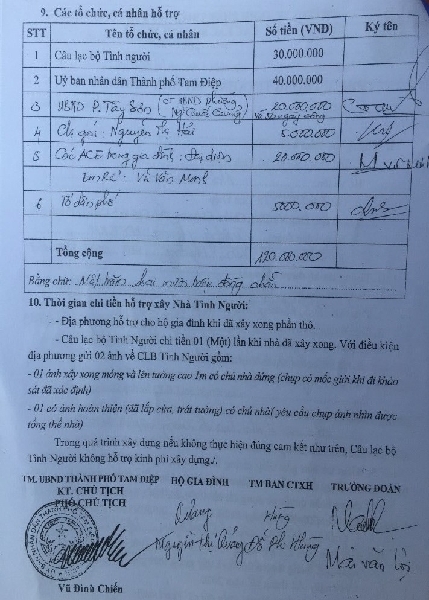 9. Các tổ chức, cá nhân hỗ trợ
STT Tên tổ chức, cá nhân Số tiền (VND) Ký tên
1 Câu lạc bộ Tình người 30.000.000
2 Uỷ ban nhân dân Thành phố Tam Điệp 40.000.000
3 UBND P. Tây Sơn 20.000.000
4 Chị gái: Nguyễn Thị 5.000.000
5 Các trong gia đình: đại diện 20.000.000
Vũ Văn Mạnh
6 Tổ dân phố 5000.000
Tổng cộng 120.000.000
Bằng chữ: Một trăm hai mươi triệu đồng chẵn
10. Thời gian chi tiền hỗ trợ xây Nhà Tình Người:
- Địa phương hỗ trợ cho hộ gia đình khi đã xây xong phần thô.
- Câu lạc bộ Tình Người chi tiền 01 (Một) lần khi nhà đã xây xong. Với điều kiện
địa phương gửi 02 ảnh về CLB Tình Người gồm:
- 01 ảnh xây xong móng và lên tường cao 1m có chủ nhà đứng (chụp có mốc giới khi đi khảo
sát đã xác định)
- 01 có ảnh hoàn thiện (đã lắp cửa, trát tường) có chủ nhà( yêu cầu chụp ảnh nhìn được
tổng thể nhà)
Trong quá trình xây dựng nếu không thực hiện đúng cam kết như trên, Câu lạc bộ
Tình Người không hỗ trợ kinh phí xây dựng./.
TM. UBND THÀNH PHỐ TAM ĐIỆP HỘ GIA ĐÌNH TM BAN CTXH TRƯỞNG ĐOÀN
KT. CHỦ TỊCH
PHÓ CHỦ TỊCH
Quảng Hùng
Nguyễn Thị Quảng Đỗ Phi Hùng Mai Văn
Vũ Đình Chiến